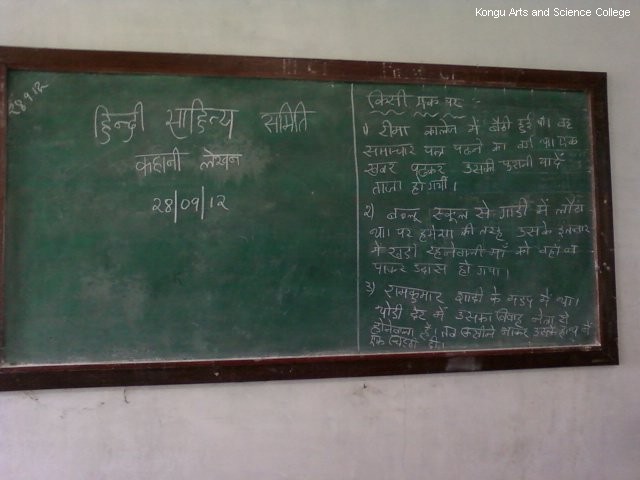 Kongu Arts and Science College
28.9.12
हिन्दी साहित्य समिति
कहानी लेखन
28/09/12
किसी एक पर :-
1) रीमा कालेज में बैठी हुई थी। वह
समाचार पत्र पढने का वर्ग था। एक
खबर पढकर उसकी पुरानी यादें
ताजा हो गयी।
2) बबलू स्कूल से गाडी में लौटा
था। पर हमेशा की तरह उसके इन्तजार
में खडी रहनेवाली माँ को वहाँ न
पाकर उदास हो गया।
3) रामकुमार शादी के मंडप में था।
थोडी देर में उसका विवाह से
होनेवाला है। तब किसीने आकर उसके हाथ में
एक चिट्ठी दी।